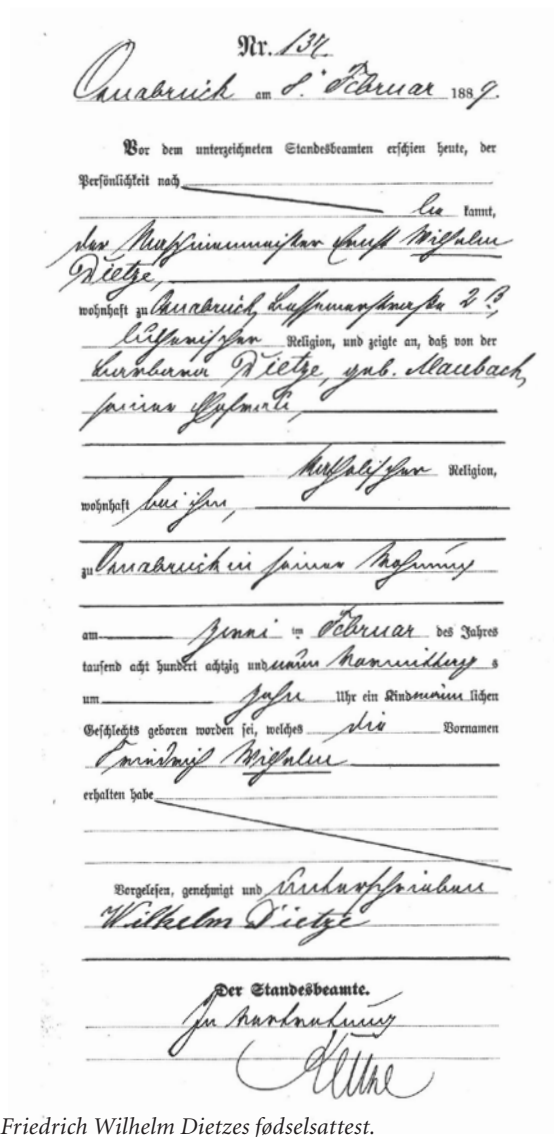 Nr. 134.
Osnabrück am 8. Februar 1889.
Vor dem unterzeichneten Standesbeamten erschien heute, der
Persönlichkeit nach
be kannt,
der Maschinenmeister Ernst Wilhelm
Dietze,
wohnhaft zu Osnabrück, straße 2
lutherischer Religion, und zeigte an, daß von der
Barbara Dietze, geb. Maubach,
seiner Ehefrau,
katholischer Religion,
wohnhaft bei ihm,
zu Osnabrück in seiner Wohnung
am zwei ten Februar des Jahres
tausend acht hundert achtzig und neun Vormittag s
um zehn Uhr ein Kind männ lichen
Geschlechts geboren worden sei, welches die Vornamen
Friedrich Wilhelm
erhalten habe
Vorgelesen, genehmigt und unterschrieben
Wilhelm Dietze
Der Standesbeamte.
In Vertretung
Friedrich Wilhelm Dietzes fødselsattest.